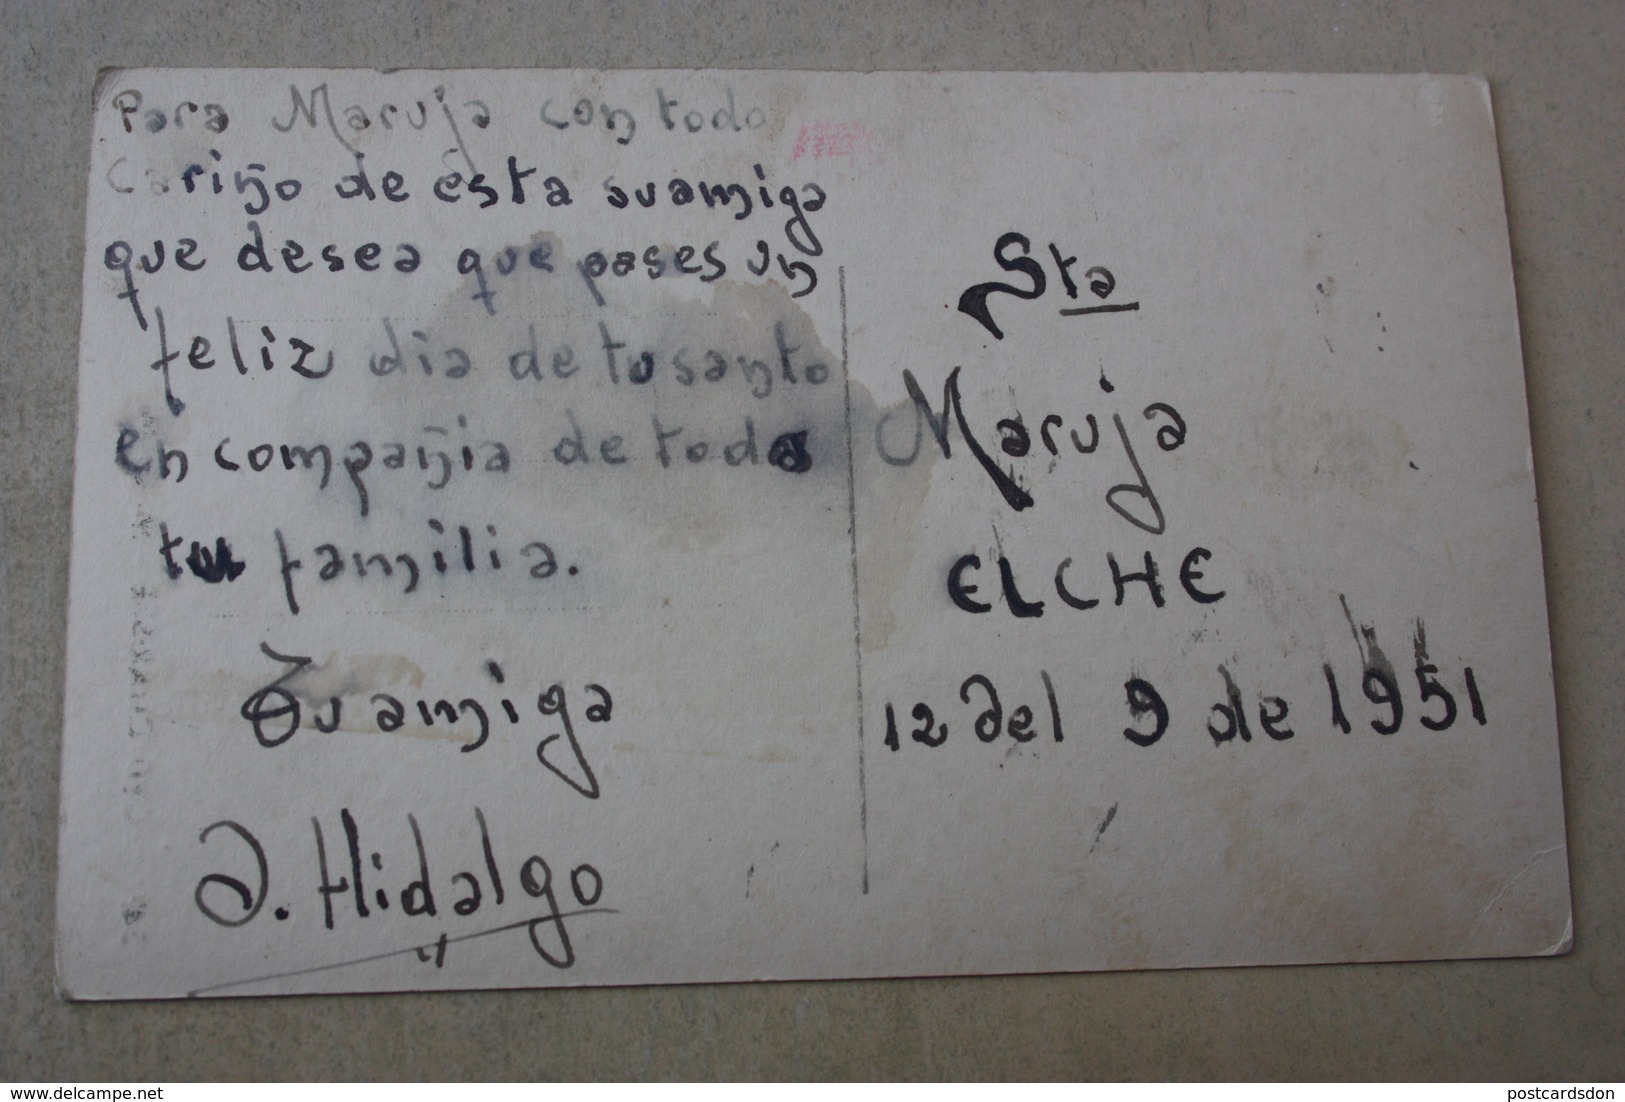 Para Maruja con todo
Cariño de ésta su amiga
que desea que pases un
feliz dia de tu santo
en compañia de toda
tu familia.
Tu amiga
J. Hidalgo
Sta
Maruja
ELCHE
12 del 9 de 1951
www.delcampe.net
postcardsdon